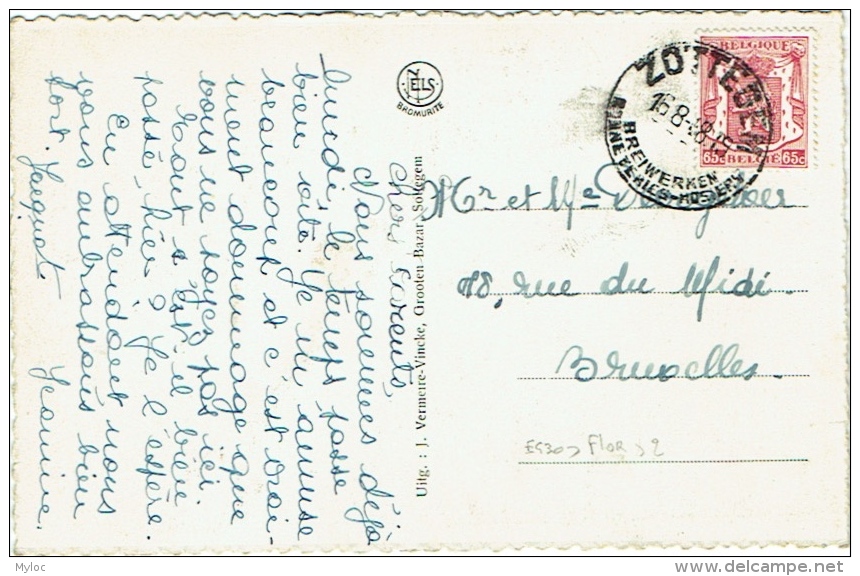 Chers Parents,
Nous sommes déjà
lundi, le temps passe
bien vite. Je m'amuse
beaucoup et c'est vrai-
ment dommage que
vous ne soyez pas ici.
Tout s'est-il bien
passé hier? Je l'espère.
En attendant nous
vous embrassons bien
fort. Jacquot Jeannine.
Uitg. : J. Vermeire-Vincke, Grooten-Bazar, Sottegem
NELS
BROMURITE
ZOTTEGEM
16.8.48.15
BREIWERKEN
BONNETERIES-HOSIERY
BELGIQUE
65c BELGIË 65c
Mr et Me
18, rue du Midi.
Bruxelles.
Flor 2
Myloc
delcampe.net